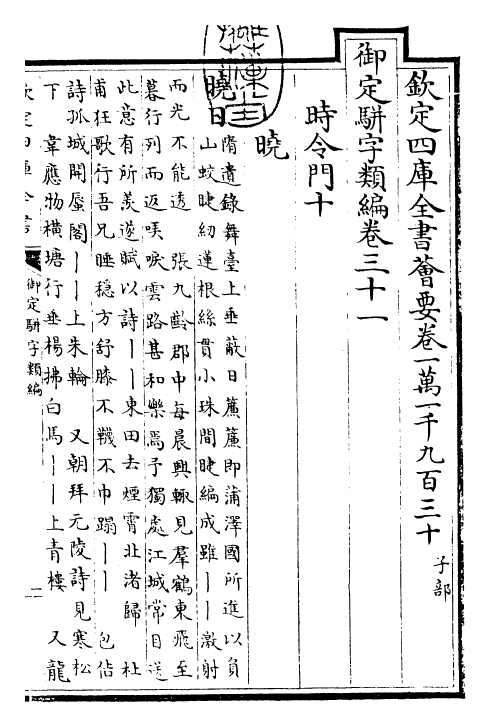 欽定四庫全書薈要卷一萬一千九百三十 子部
御定駢字類編卷三十一
時令門十
曉
曉日 隋遺錄舞臺上垂蔽日簾簾即蒲澤國所進以負
山蛟睫紉蓮根絲貫小珠間睫編成雖丨丨激射
而光不能透 張九齡郡中每晨興輒見羣鶴東飛至
暮行列而返哢唳雲路甚和樂焉予獨處江城常目送
此意有所羨遂賦以詩丨丨東田去煙霄北渚歸 杜
甫狂歌行吾兄睡穏方舒膝不韈不巾蹋丨丨 包佶
詩孤城開蜃閣丨丨上朱輪 又朝拜元陵詩見寒松
下 韋應物横塘行垂楊拂白馬丨丨上青樓 又龍
欽定四庫全書
御定駢字類編